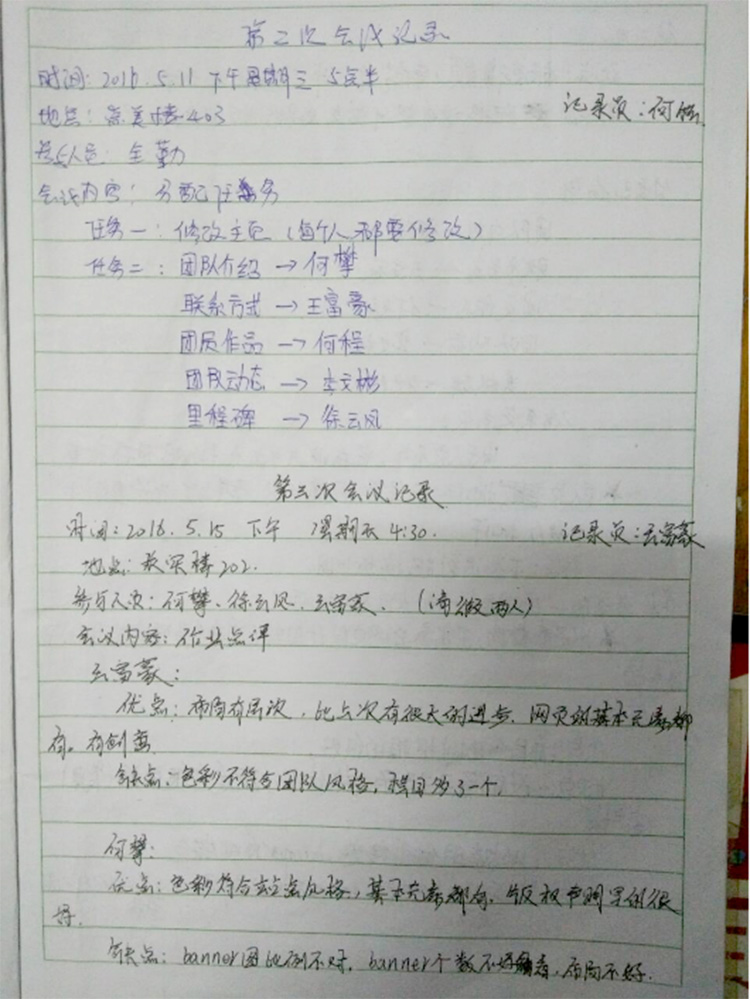 第二次会议记录
时间：2016.5.11 下午星期三 5点半
地点：崇美楼403
记录员：何
参与人员：全勤
会议内容：分配任务
任务一：修改主页（每个人都要修改）
任务二：团队介绍→何攀
联系方式→王富豪
团员作品→何程
团队动态→李文彬
里程碑→徐云风
第三次会议记录
时间：2016.5.15 下午 星期天4:30.
记录员：王富豪
地点：教实楼202.
参与人员：何攀、徐云风、王富豪.（满 两人）
会议内容：作业点评
王富豪：
优点：布局有层次，比上次有很大的进步.网页的基本元素都
有。有创意
缺点：色彩不符合团队风格，栏目多了一个.
何攀：
优点：色彩符合 风格，基本元素都有.版权声明写的很
好.
缺点：banner图比例不对，banner个数不好 ，布局不好.